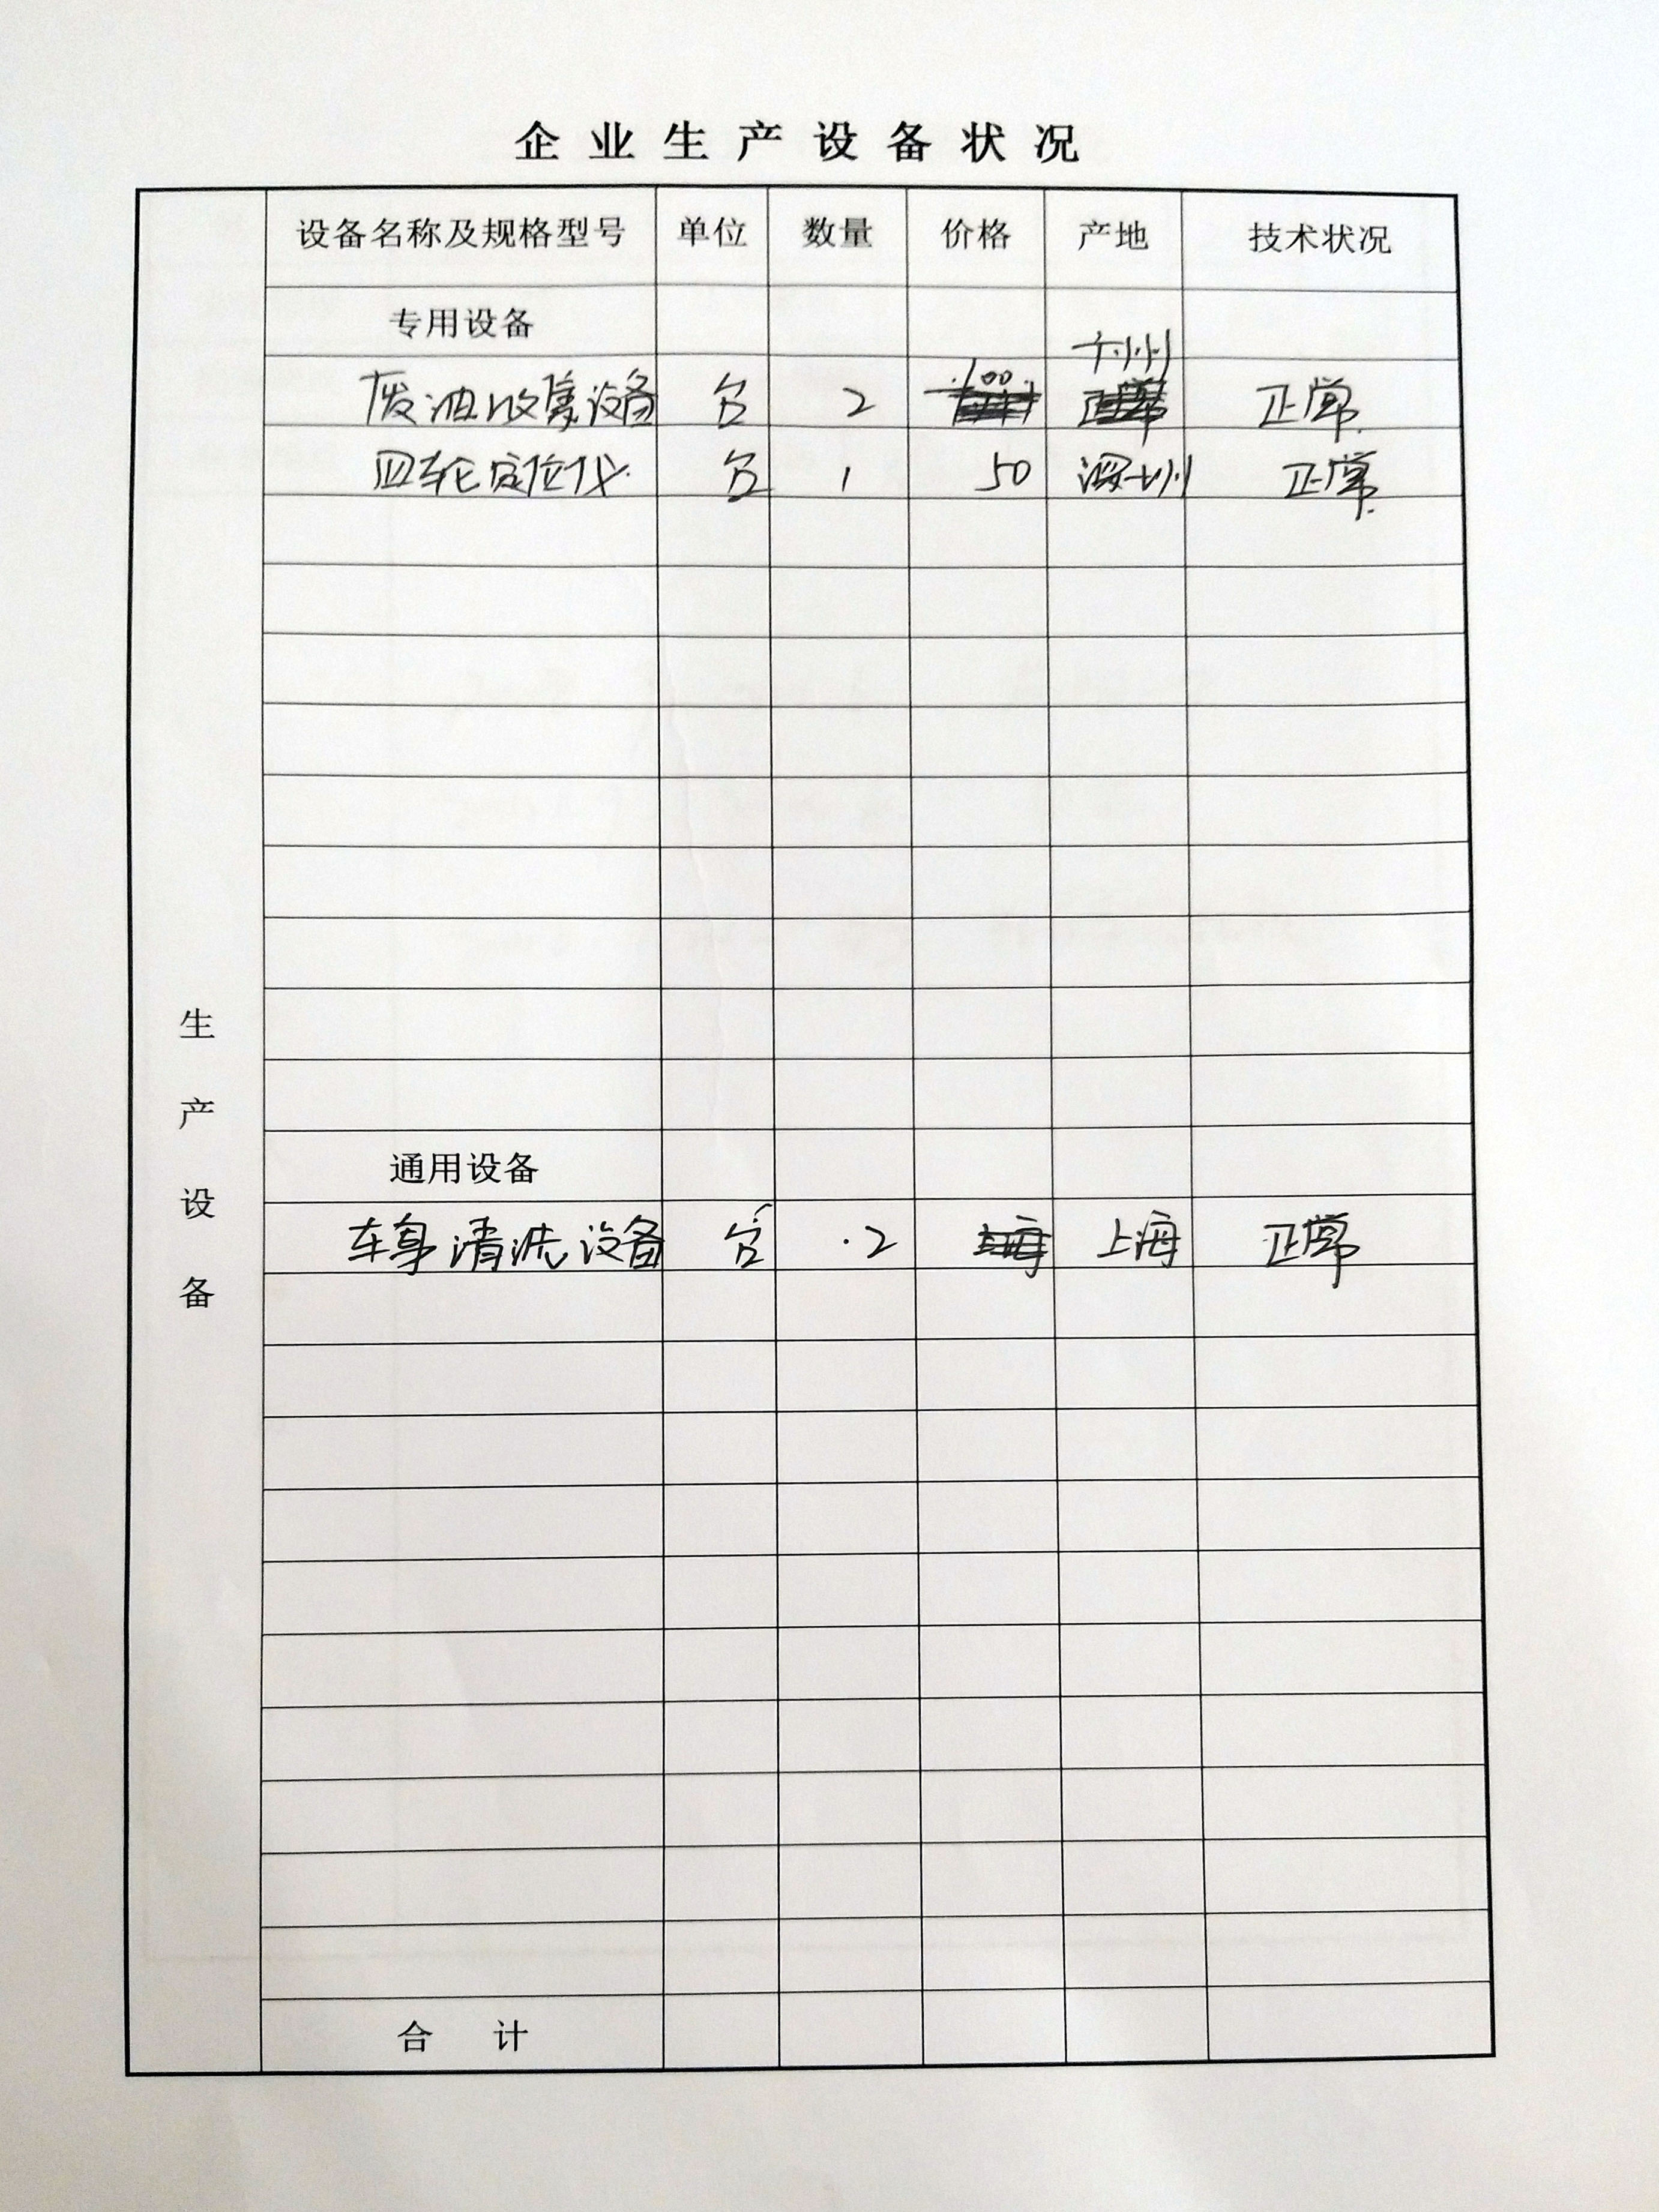 企业生产设备状况
设备名称及规格型号 单位 数量 价格 产地 技术状况
专用设备
废油收集设备 台 2 100 广州 正常
四轮定位仪 台 1 50 深圳 正常
生产设备
通用设备
车身清洗设备 台 2 上海 正常
合计